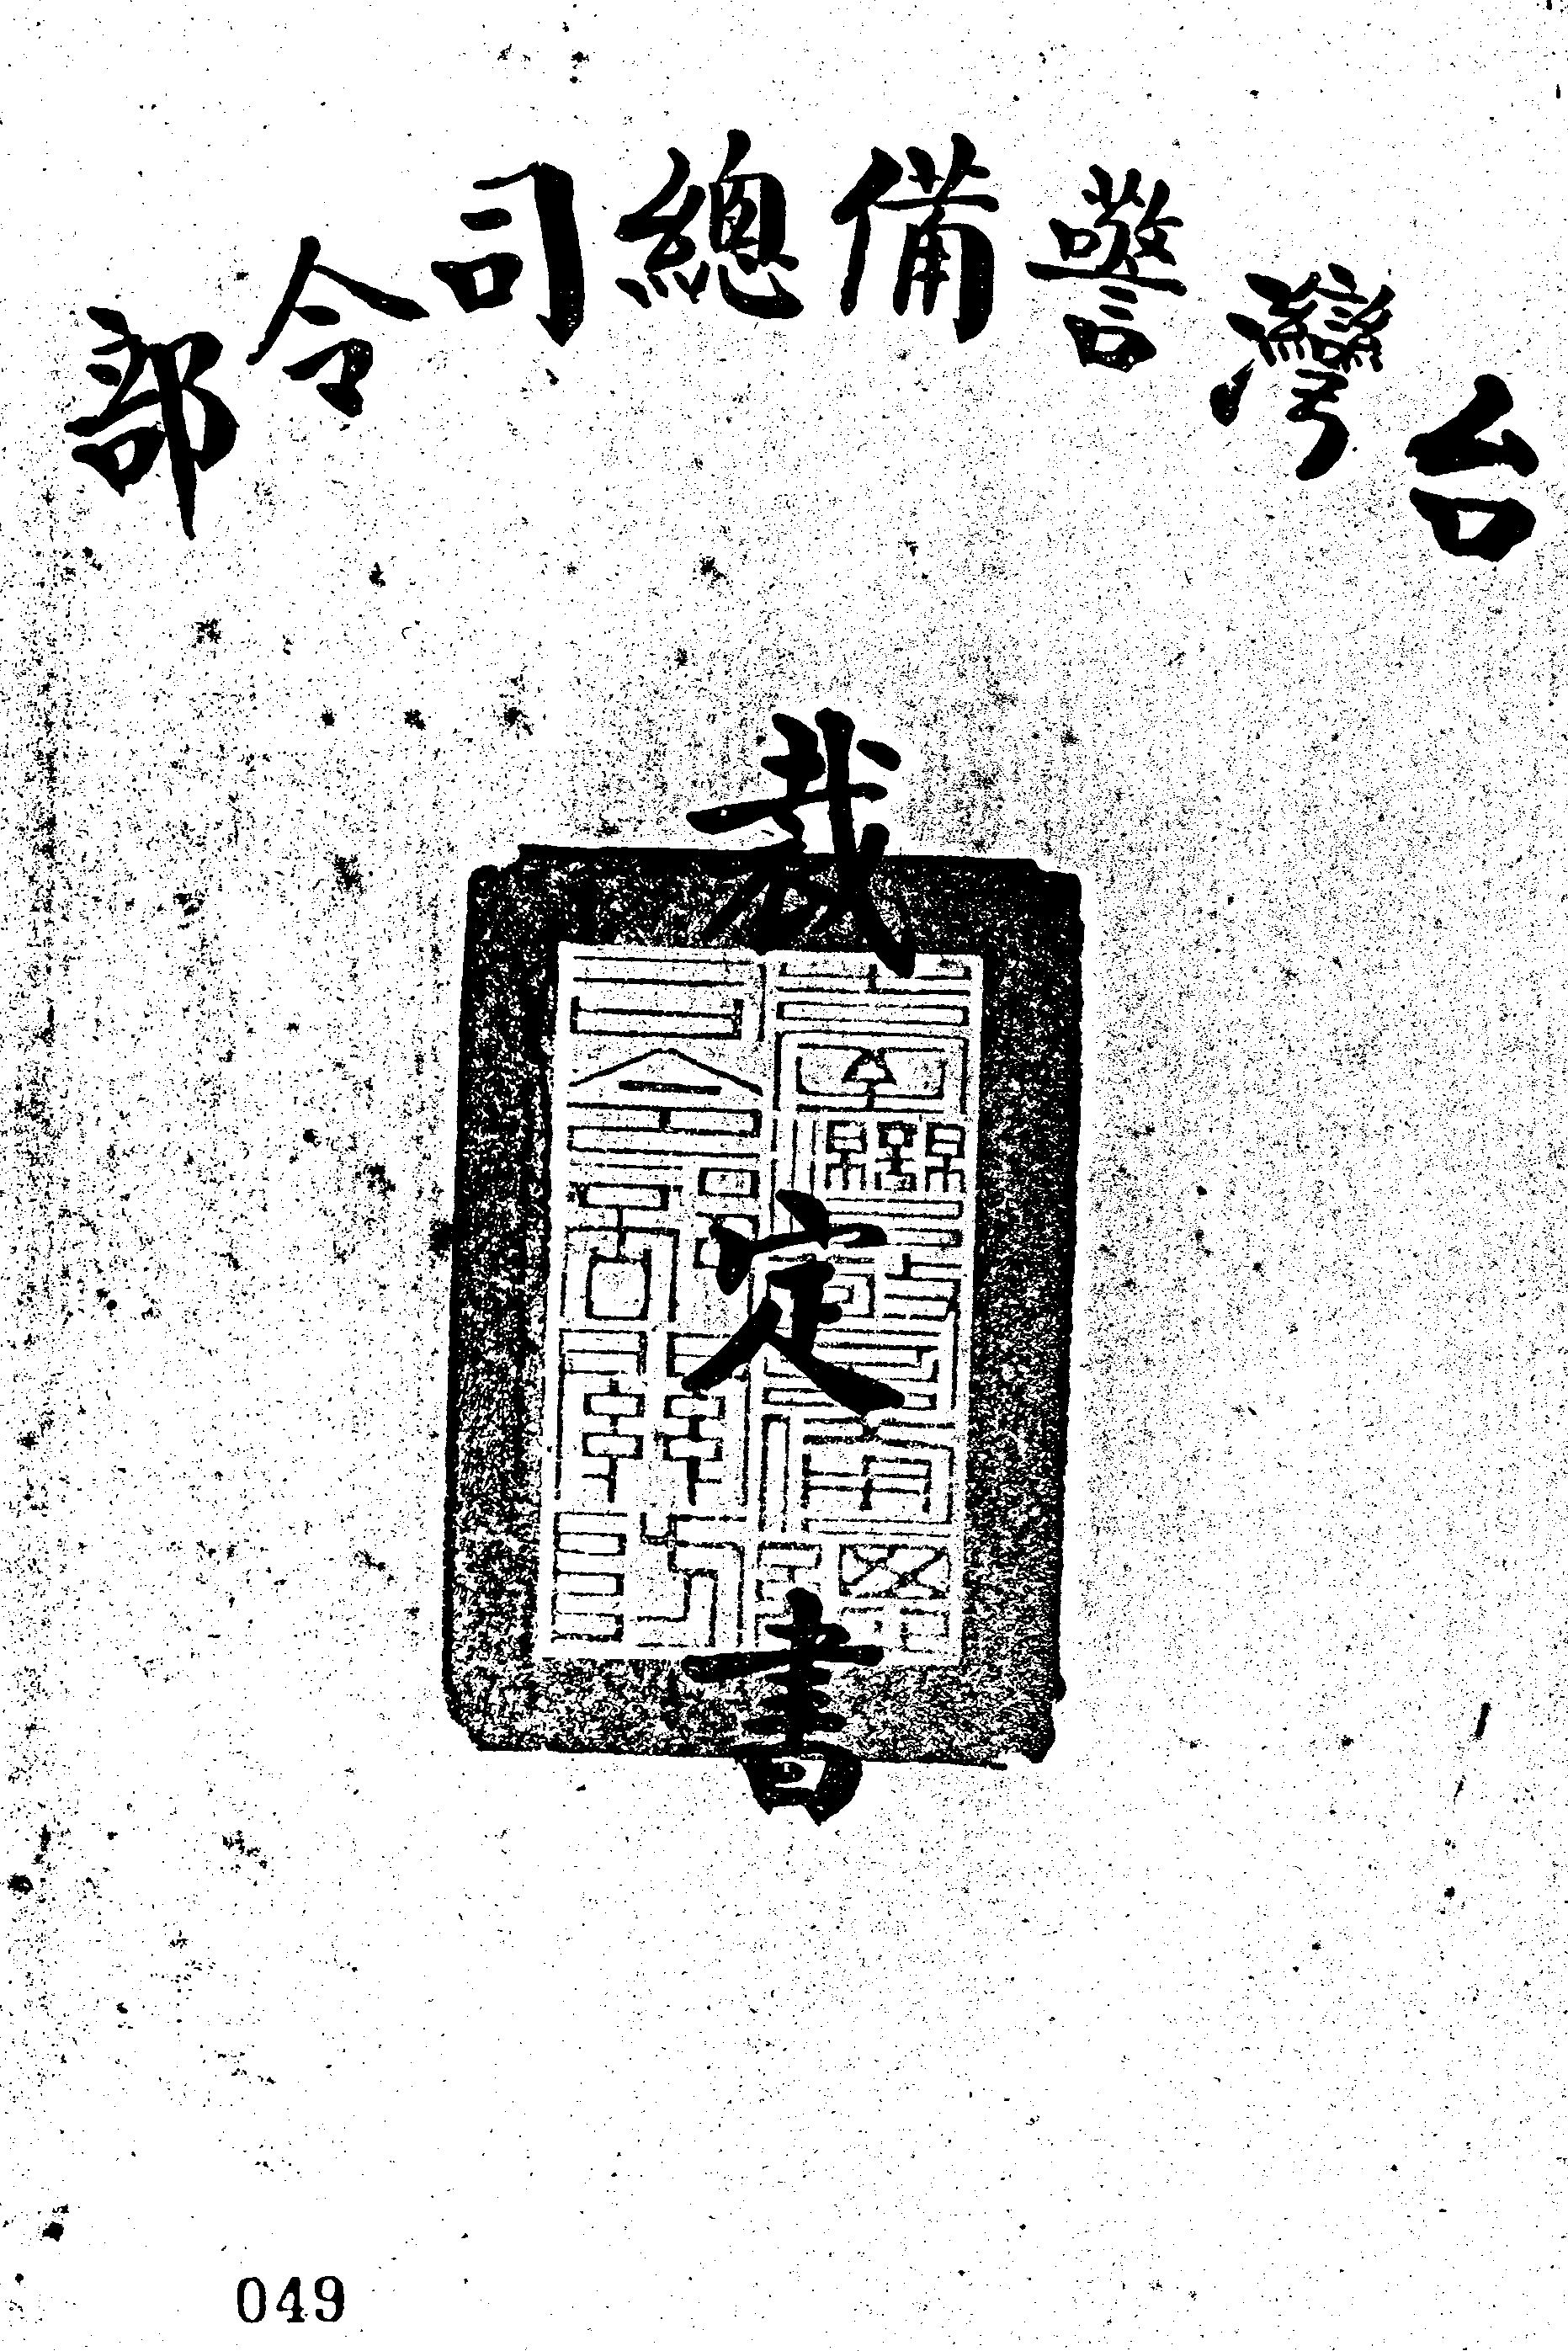 台灣警備總司令部
裁定書
臺灣警備總司令部印
049